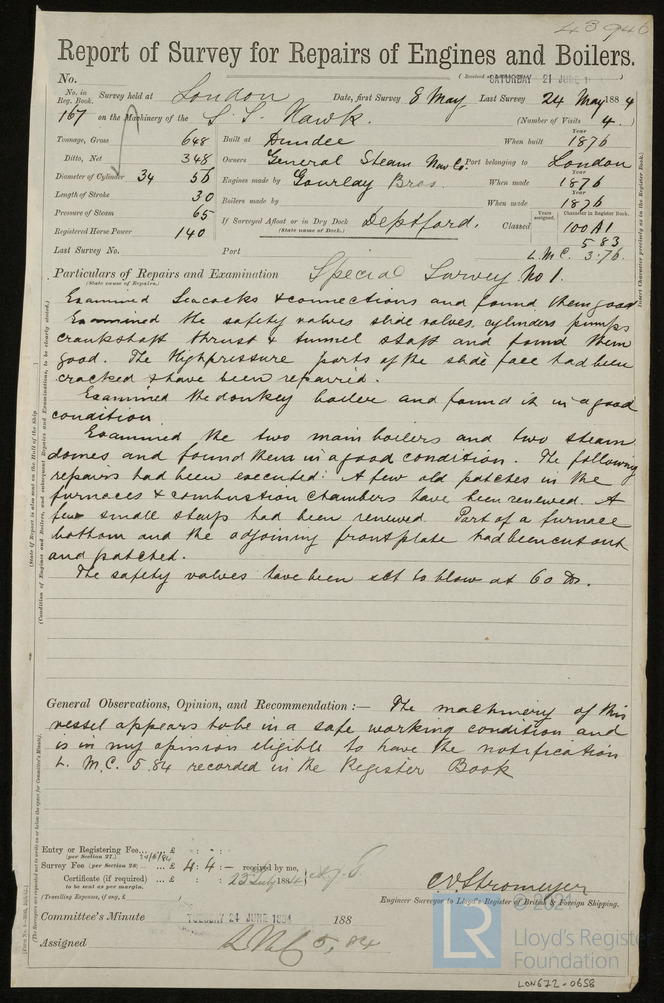 43946
Report of Survey for Repairs of Engines and Boilers.
No. (Received at SATURDAY 21 JUNE 1 )
No. in Reg. Book. Survey held at London Date, first Survey 8 May Last Survey 24 May 1884
167 on the Machinery of the S. S. Hawk. (Number of Visits 4.)
Tonnage, Gross 648 Built at Dundee When built Year 1876
Ditto, Net 348 Owners General Steam Nav Co. Port belonging to London
Diameter of Cylinder 34 56 Engines made by Gourlay Bros. When made Year 1876
Length of Stroke 30 Boilers made by When made 1876
Pressure of Steam 65 If Surveyed Afloat or in Dry Dock Deptford. Classed Years assigned. Character in Register Book. 100 A1
(State name of Dock.)
Registered Horse Power 140 5 83
Last Survey No. Port L. M. C. 3.76
Particulars of Repairs and Examination Special Survey No 1.
(State name of Repairs.)
Examined Seacocks & connections and found them good
Examined the safety valves slide valves, cylinders pumps
crankshaft thrust & tunnel shaft and found them
good. The Highpressure ports of the slide face had been
cracked & have been repaired.
Examined the donkey boiler and found it in a good
condition.
Examined the two main boilers and two steam
domes and found them in a good condition. The following
repairs had been executed: A few old patches in the
furnaces & combustion chambers have been renewed. A
few small stays had been renewed. Part of a furnace
bottom and the adjoining frontplate had been cut out
and patched.
The safety valves have been set to blow at 60 lbs.
General Observations, Opinion, and Recommendation :— The machinery of this
vessel appears to be in a safe working condition and
is in my opinion eligible to have the notification
L. M. C. 5.84 recorded in the Register Book
Entry or Registering Fee... £ : :
(per Section 27.)
Survey Fee (per Section 28) ... £ 4 : 4 : — received by me,
Certificate (if required) ... £ : : 23 July 1884
to be sent as per margin.
(Travelling Expenses, if any, £ )
C. E. Stromeyer
Engineer Surveyor to Lloyd's Register of British & Foreign Shipping.
Committee's Minute TUESDAY 24 JUNE 1884 188
Assigned LMC 5,84
© 2021
LR Lloyd's Register
Foundation
LON672-0658